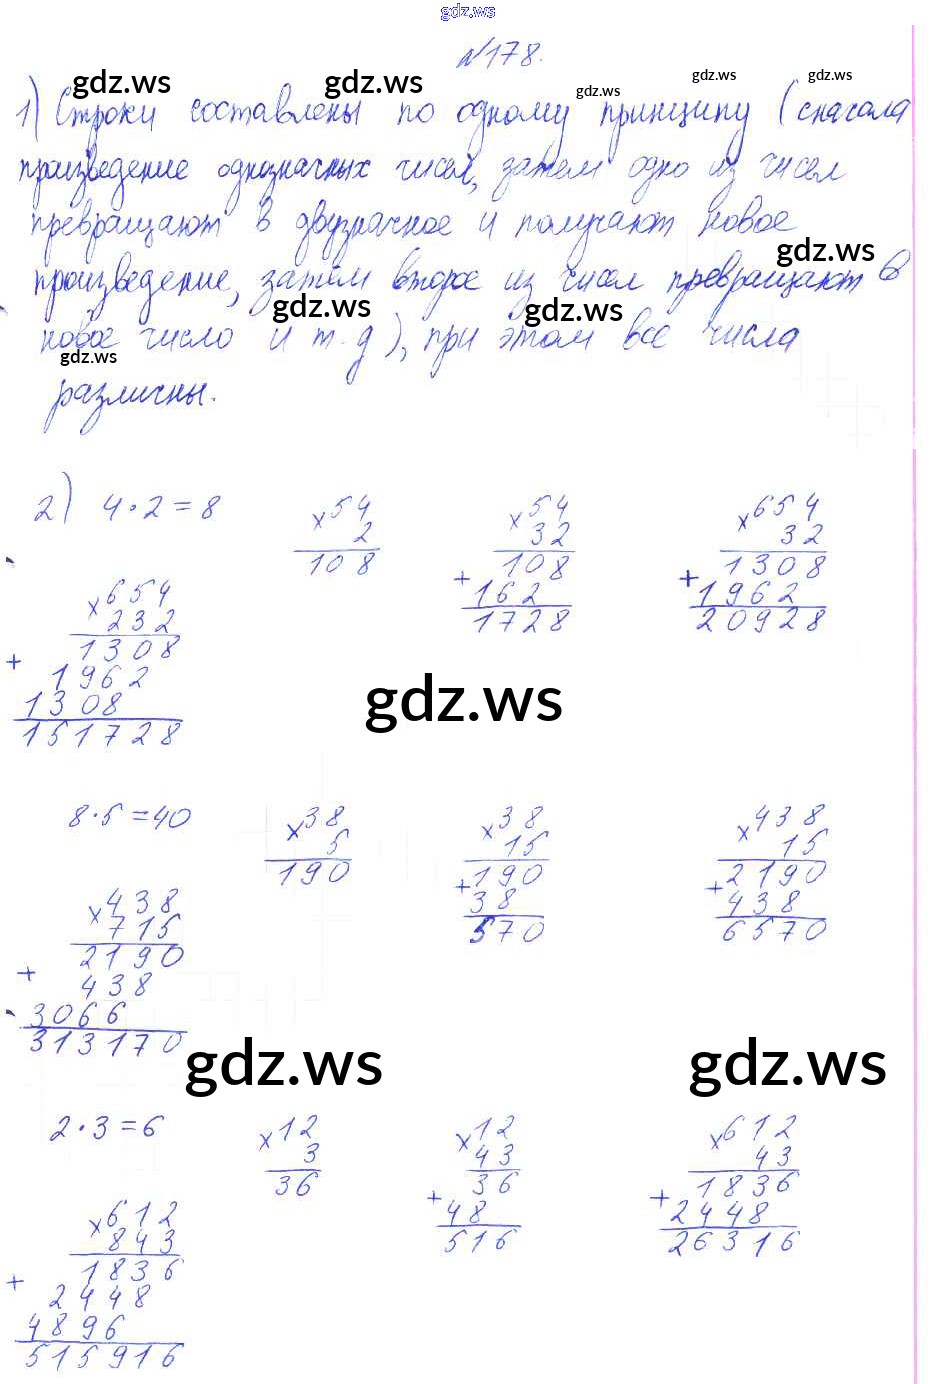 gdz.ws
№178.
gdz.ws gdz.ws gdz.ws gdz.ws gdz.ws
1) Строки составлены по одному принципу (сначала
произведение однозначных чисел, затем одно из чисел
превращают в двузначное и получают новое
gdz.ws
произведение, затем второе из чисел превращают в
gdz.ws gdz.ws
новое число и т.д), при этом все числа
gdz.ws
различны.
2) 4·2=8 ×54 ×54 ×654
2 32 32
108 108 1308
+162 +1962
1728 20928
×654
232
1308
+1962
1308
151728
gdz.ws
8·5=40 ×38 ×38 ×438
5 15 15
190 190 2190
+38 +438
570 6570
×438
715
2190
+438
3066
313170
gdz.ws gdz.ws
2·3=6 ×12 ×12 ×612
3 43 43
36 36 1836
+48 +2448
516 26316
×612
843
1836
+2448
4896
515916